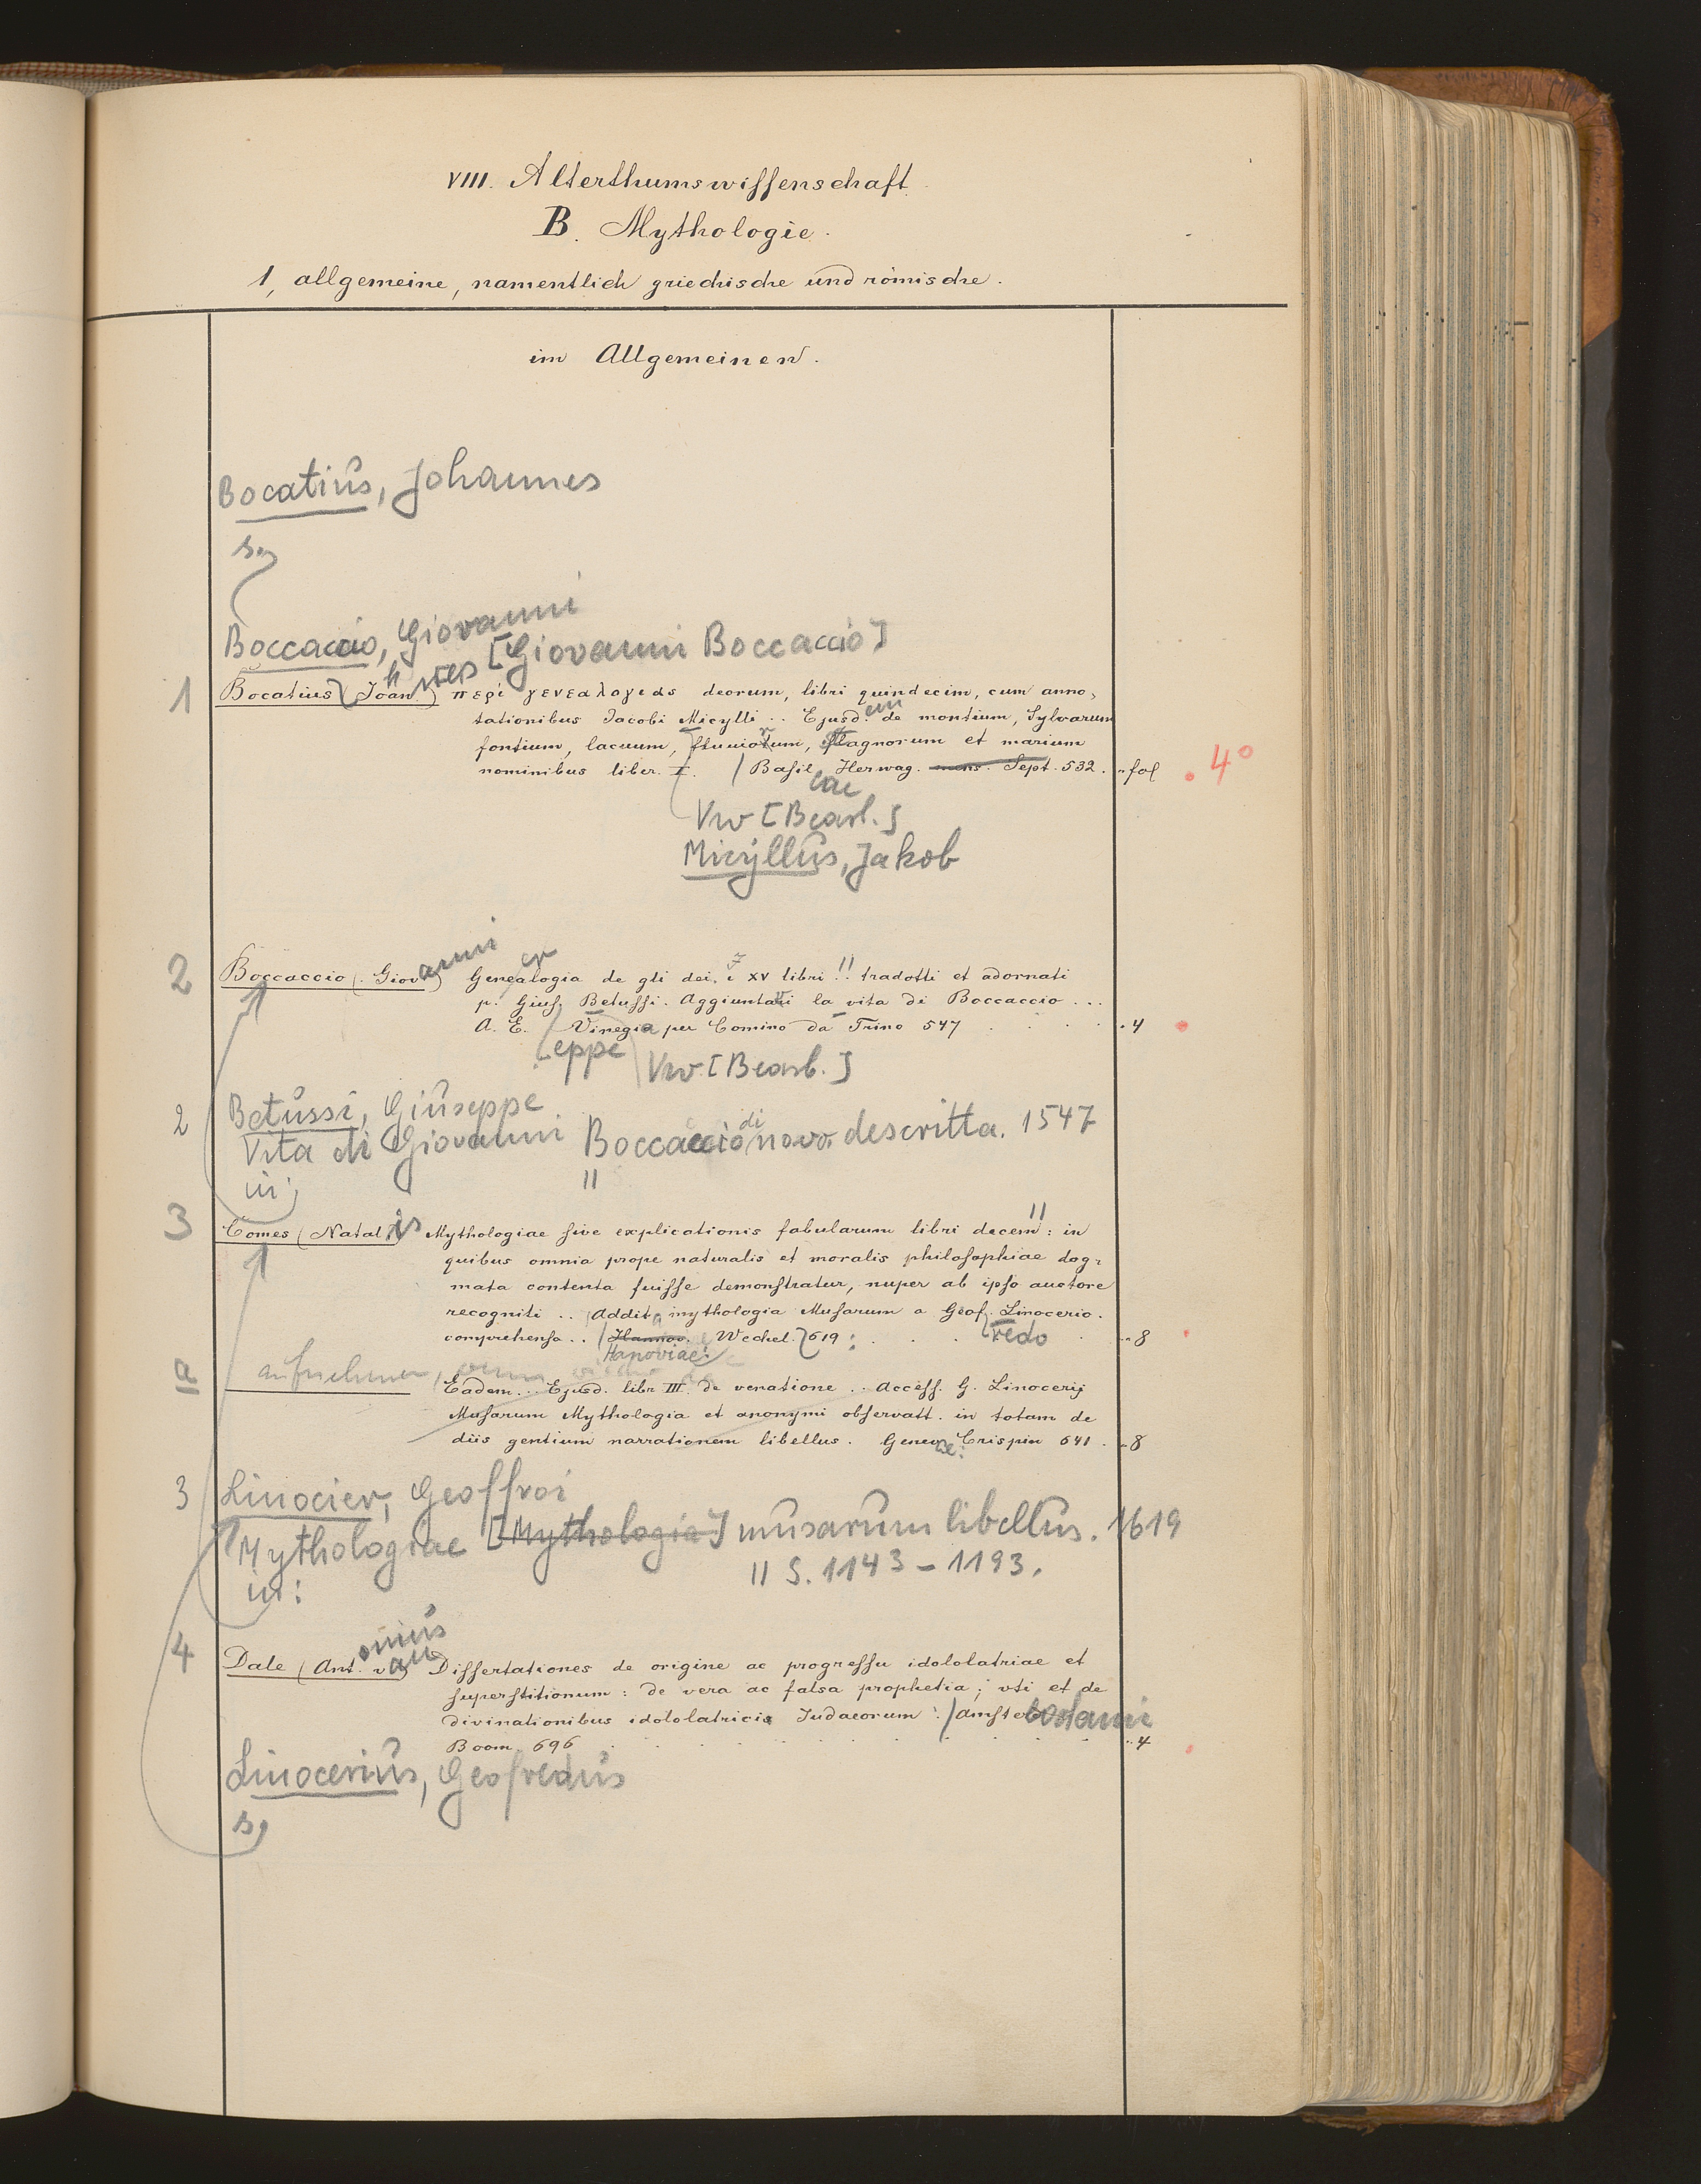 VIII. Alterthumswissenschaft.
B. Mythologie.
1, allgemeine, namentlich griechische und römische.
im Allgemeinen.
Bocatius, Johannes
s.
Boccaccio, Giovanni
[Giovanni Boccaccio]
1 Bocatius (Joan.) περὶ γενεαλογιας deorum, libri quindecim, cum anno-
tationibus Jacobi Micylli .. Ejusd. de montium, Sylvarum
fontium, lacuum, fluviorum, stagnorum et marium
nominibus liber. I. Basil. Herwag. mens. Sept. 532. fol 4°
eae
Vw [Bearb.]
Micyllus, Jakob
2 Boccaccio (Giovanni) Genealogia de gli dei. i XV libri !! tradotti et adornati
p. Gius. Betussi. Aggiuntavi la vita di Boccaccio ...
A. E. Vinegia per Comino da Trino 547 4
eppe Vw. [Bearb.]
2 Betussi, Giuseppe
Vita di Giovanni Boccaccio di novo descritta. 1547
in: ||
3 Comes (Natalis) Mythologiae sive explicationis fabularum libri decem: in
quibus omnia prope naturalis et moralis philosophiae dog-
mata contenta fuisse demonstratur, nuper ab ipso auctore
recogniti .. Addita mythologia Musarum a Geof. Linocerio.
comprehensa .. Hannov. Wechel. 619: redo 8
Hanoviae:
a aufnehmen, wenn
Eadem .. Ejusd. libr III. de venatione .. Access. G. Linocerij
Musarum Mythologia et anonymi observatt. in totam de
diis gentium narrationem libellus. Genevae: Crispin 641. 8
3 Linocier, Geoffroi
Mythologiae [Mythologia] musarum libellus. 1619
in: || S. 1143-1193.
4 Dale (Antonius van) Dissertationes de origine ac progressu idololatriae et
superstitionum: de vera ac falsa prophetia; uti et de
divinationibus idololatricis Judaeorum. Amstelodami
Boom 696 4
Linocerius, Geofredus
s.